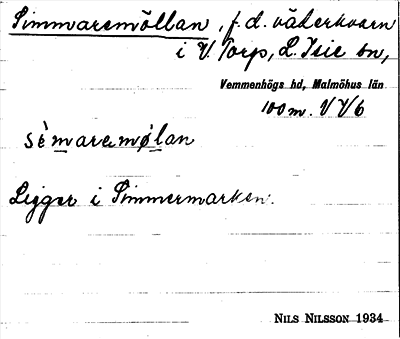 Simmaremöllan, f.d. väderkvarn
i V. Torp, L. Isie sn,
Vemmenhögs hd, Malmöhus län
100 m. V V/6
sèmaremø̀lan
Ligger i Simmermarken.
NILS NILSSON 1934